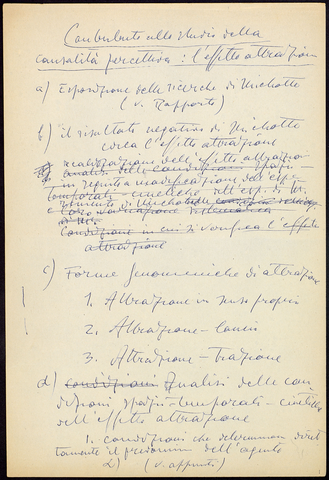 Contributo allo studio della
causalità percettiva: l'effetto attrazione
a) Esposizione delle ricerche di Michotte
(v. Rapporto)
b) il risultato negativo di Michotte
circa l'effetto attrazione
realizzazione dell'effetto attrazio-
ne in seguito a modificazioni dell'espe-
rimento di Michotte
condizione in cui si verifica l'effetto
attrazione
c) Forme fenomeniche di attrazione
1. Attrazione in senso proprio
2. Attrazione-lancio
3. Attrazione-trazione
d) condizioni Analisi delle con
dizioni spazio-temporali-cinetiche
dell'effetto attrazione
1. condizioni che determinano diret
tamente il predominio dell'agente
2) (v. appunti)